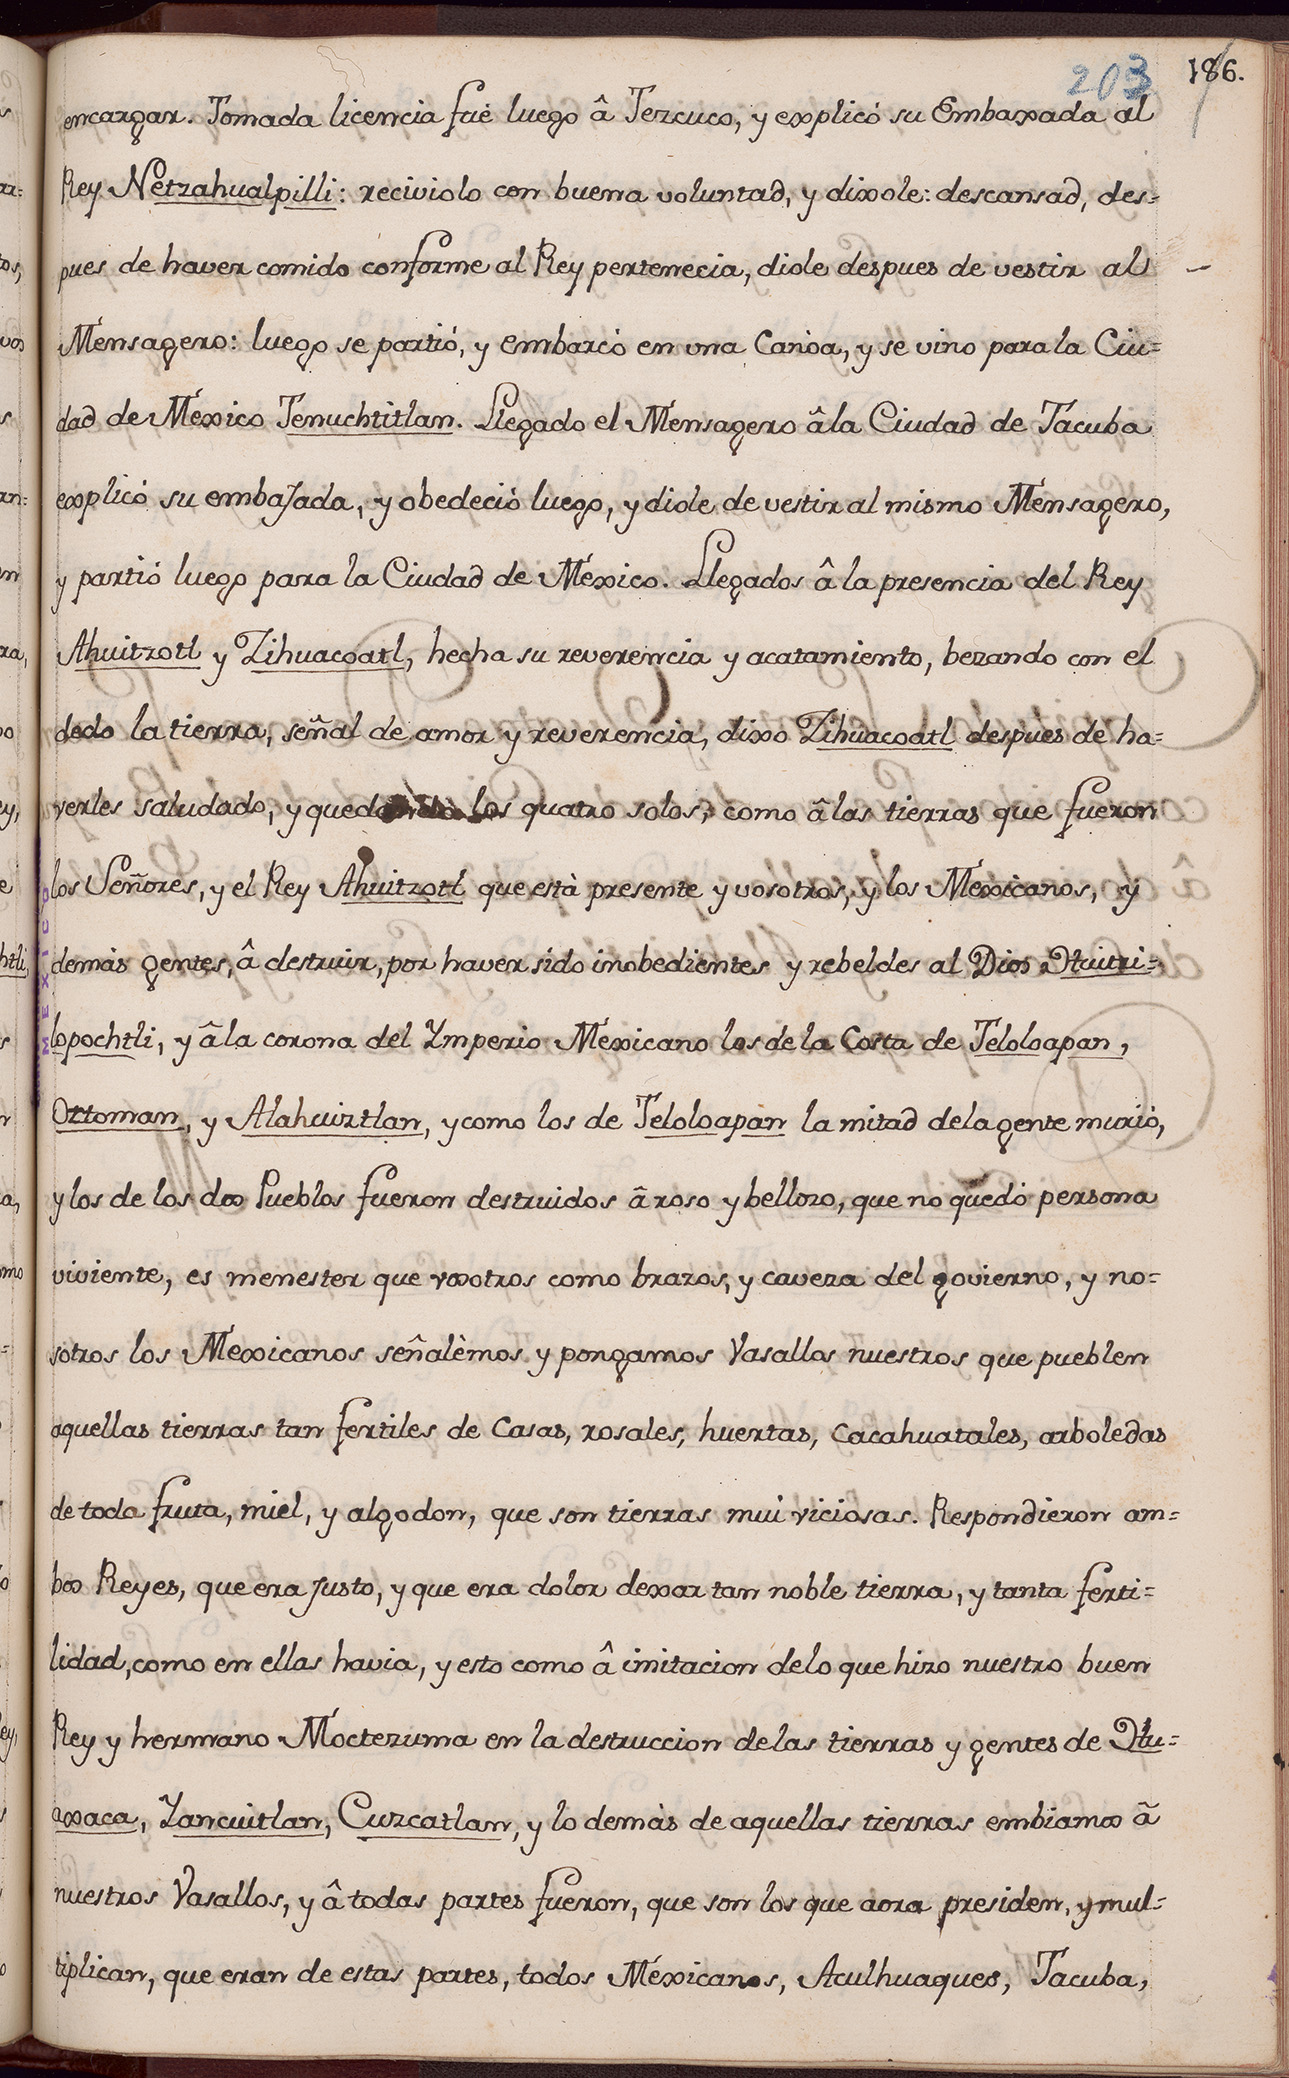 203 186.
encargar. Tomada licencia fué luego â Tezcuco, y explicó su Embaxada al
Rey Netzahualpilli: reciviolo con buena voluntad, y dixole: descansad, des=
pues de haver comido conforme al Rey pertenecia, diole despues de vestir al
Mensagero: luego se partió, y embarcó en vna Canoa, y se vino para la Ciu=
dad de Mexico Tenuchtitlan. Llegado el Mensagero âla Ciudad de Tacuba
explicó su embaJada, y obedeció luego, y diole de vestir al mismo Mensagero,
y partió luego para la Ciudad de Mexico. Llegados â la presencia del Rey
Ahuitzotl y Zihuacoatl, hecha su reverencia y acatamiento, bezando con el
dedo la tierra, señal de amor y reverencia, dixo Zihuacoatl despues de ha=
verles saludado, y quedando los quatro solos, como âlas tierras que fueron
los Señores, y el Rey Ahuitzotl que està presente y vosotros, y los Mexicanos, y
demás gentes, â destruir, por haver sido inobedientes y rebeldes al Dios Huitzi=
lopochtli, y âla corona del Ymperio Mexicano los de la Costa de Teloloapan,
Oztoman, y Alahuiztlan, y como los de Teloloapan la mitad dela gente murió,
y los de los dos Pueblos fueron destruidos â roso y bellozo, que no quedó persona
viviente, es menester que vosotros como brazos, y caveza del govierno, y no=
sotros los Mexicanos señalèmos y pongamos Vasallos nuestros que pueblen
aquellas tierras tan fertiles de Casas, rosales, huertas, Cacahuatales, arboledas
de toda fruta, miel, y algodon, que son tierras mui viciosas. Respondieron am=
bos Reyes, que era Justo, y que era dolor dexar tan noble tierra, y tanta ferti=
lidad, como en ellas havia, y esto como â imitacion delo que hizo nuestro buen
Rey y hermano Moctezuma en la destruccion delas tierras y gentes de Hu=
axaca, Yancuitlan, Cuzcatlan, y lo demàs de aquellas tierras embiamos â
nuestros Vasallos, y â todas partes fueron, que son los que aora presiden, y mul=
tiplican, que eran de estas partes, todos Mexicanos, Aculhuaques, Tacuba,
MEXICO